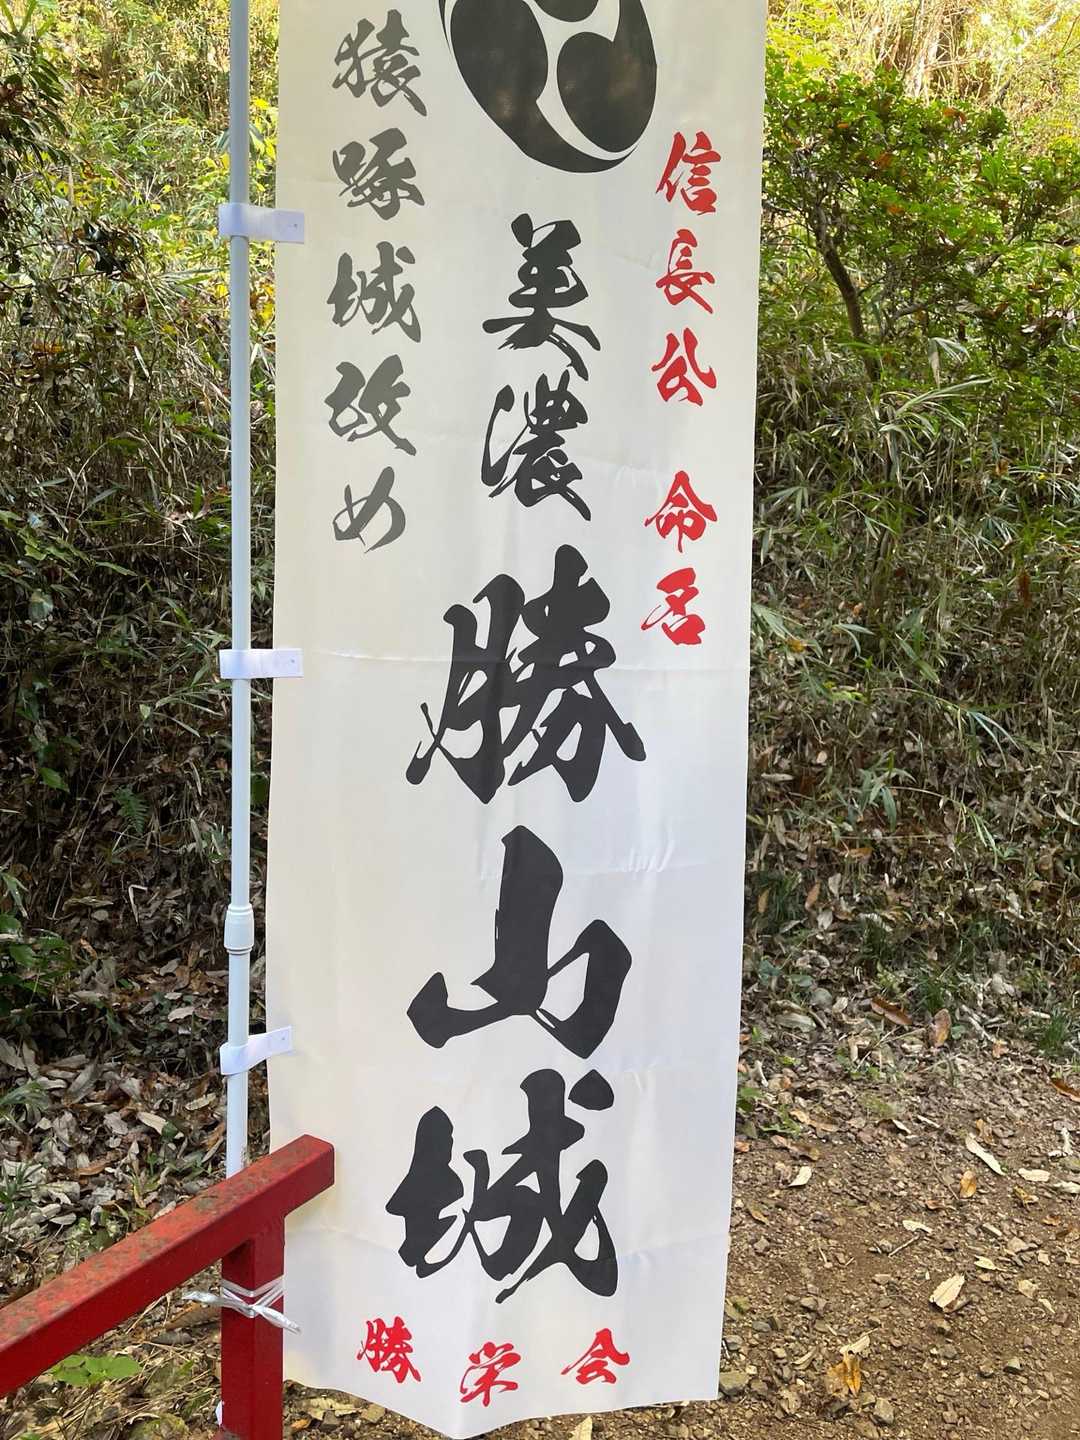 信長公 命名
美濃 勝山城
猿啄城改め
勝栄会